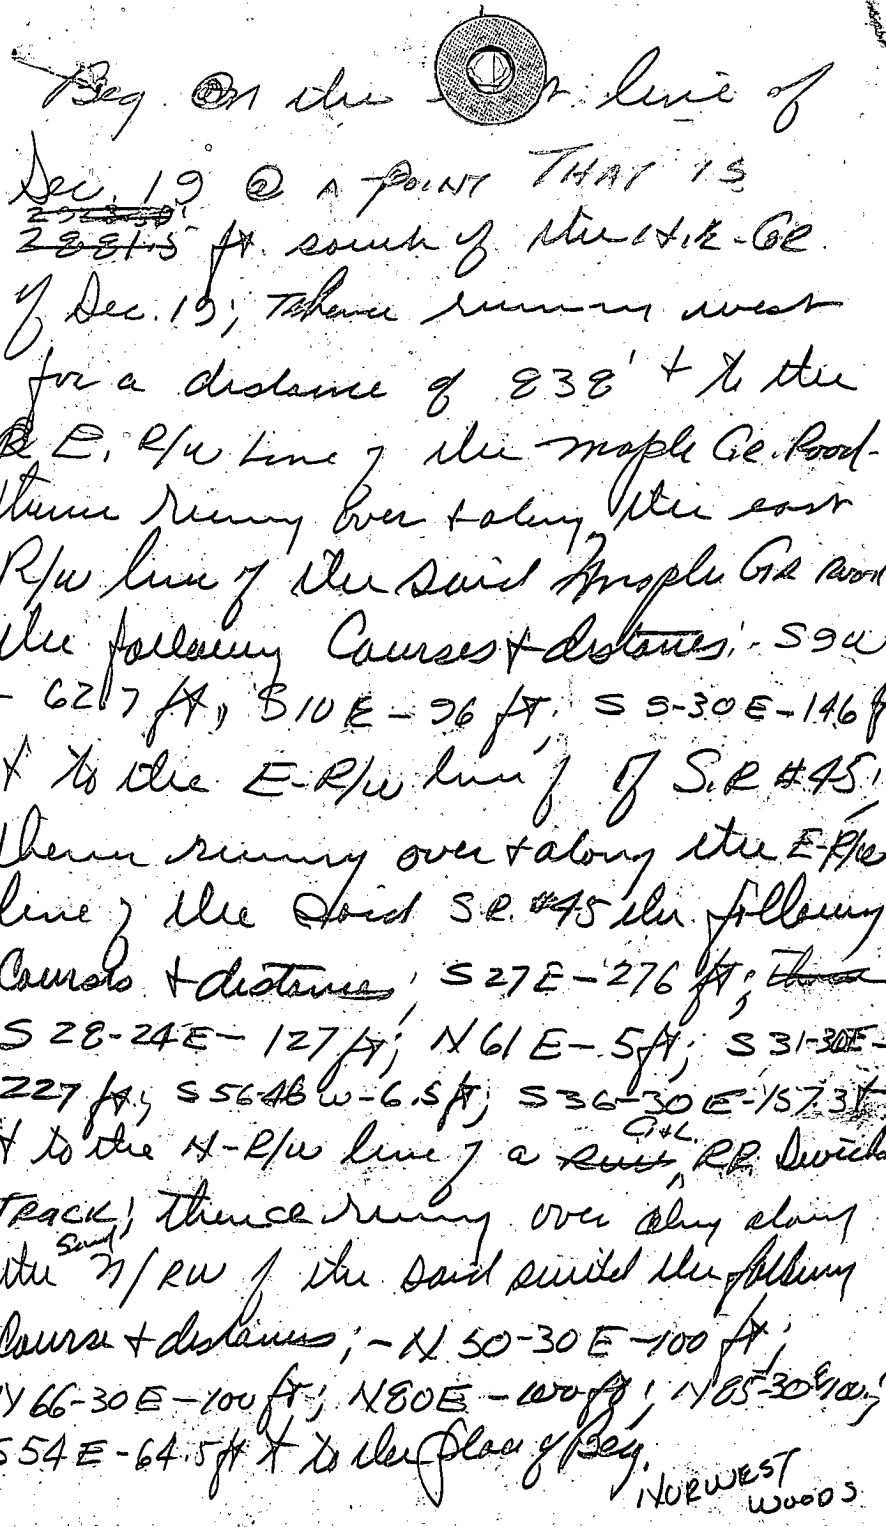 Beg. @ On the t line of
Sec. 19 @ A POINT THAT IS
2881.5 ft. south of the N.E-CR.
of Sec. 19; Thence running west
for a distance of 838' + to the
E. R/W Line of the Maple Gr. Road-
thence running over + along the east
R/W line of the said Maple GR Road
the following Courses + distances:- S9W
- 62.7 ft., S10E-96 ft; S 9-30E-146 f
+ to the E-R/W line of of S.R #45;
thence running over + along the E-R/W
line of the said S.R. #45 the following
Courses + distances; S27E-276 ft; thence
S 28-24E- 127 ft; N61E-5ft; S 31-30E-
227 ft.; S56-48W-6.5ft; S36-30E-157.3ft
+ to the N-R/W line of a RR Switch
TRACK; thence running over along along
the said N/RW of the said switch the following
Course + distances; -N50-30E-100 ft;
N66-30E-100 ft; N80E-100 ft; N85-30E 100;
S54E-64.5ft + to the place of Beg.
NORWEST
WOODS